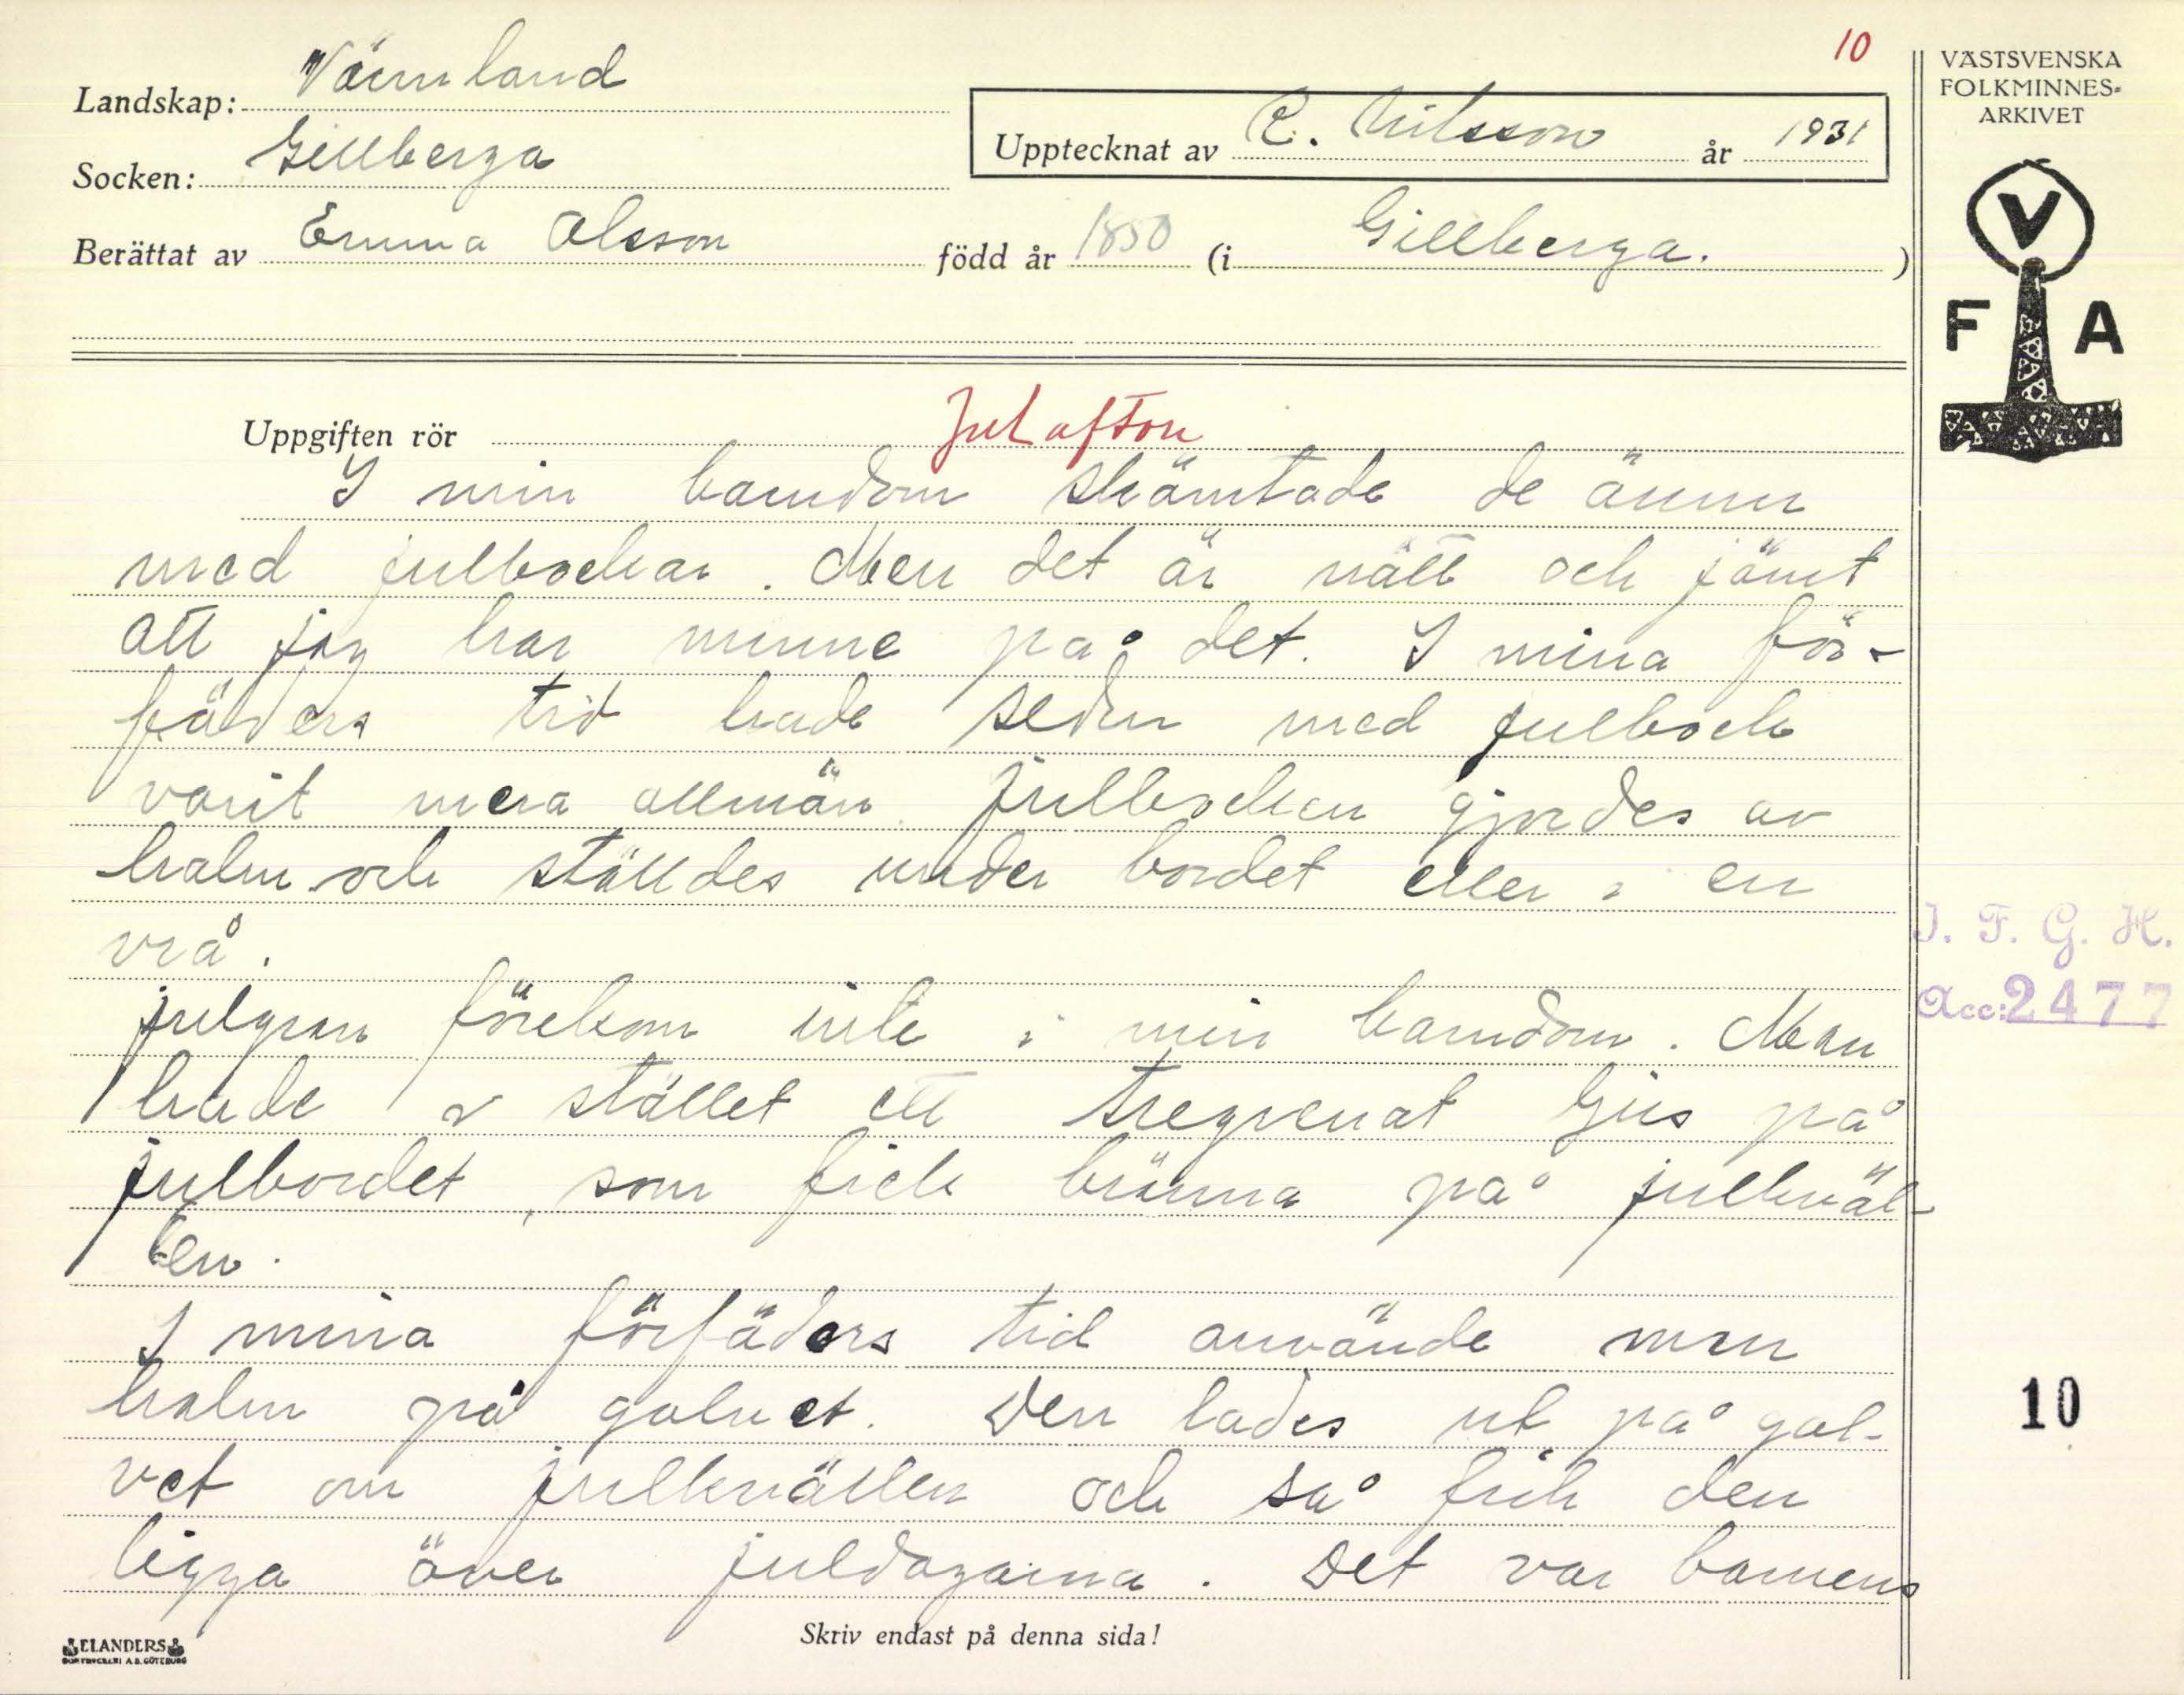 10
Landskap: Värmland
Socken: Gillberga
Upptecknat av R. Nilsson år 1931
Berättat av Emma Olsson född år 1850 (i Gillberga.)
VÄSTSVENSKA
FOLKMINNES-
ARKIVET
V
F A
Uppgiften rör Julafton
I min barndom skämtade de ännu
med julbockar. Men det är nätt och jämt
att jag har minne på det. I mina för-
fäders tid hade seden med julbock
varit mera allmän. Julbocken gjordes av
halm och ställdes under bordet eller i en
vrå.
Julgran förekom inte i min barndom. Man
hade i stället ett tregrenat ljus på
julbordet, som fick brinna på julkväl-
len.
I mina förfäders tid använde man
halm på golvet. Den lades ut på gol-
vet om julkvällen och så fick den
ligga över juldagarna. Det var barnens
I. F. G. H.
Acc: 2477
10
Skriv endast på denna sida!
ELANDERS
BOKTRYCKERI A.B. GÖTEBORG